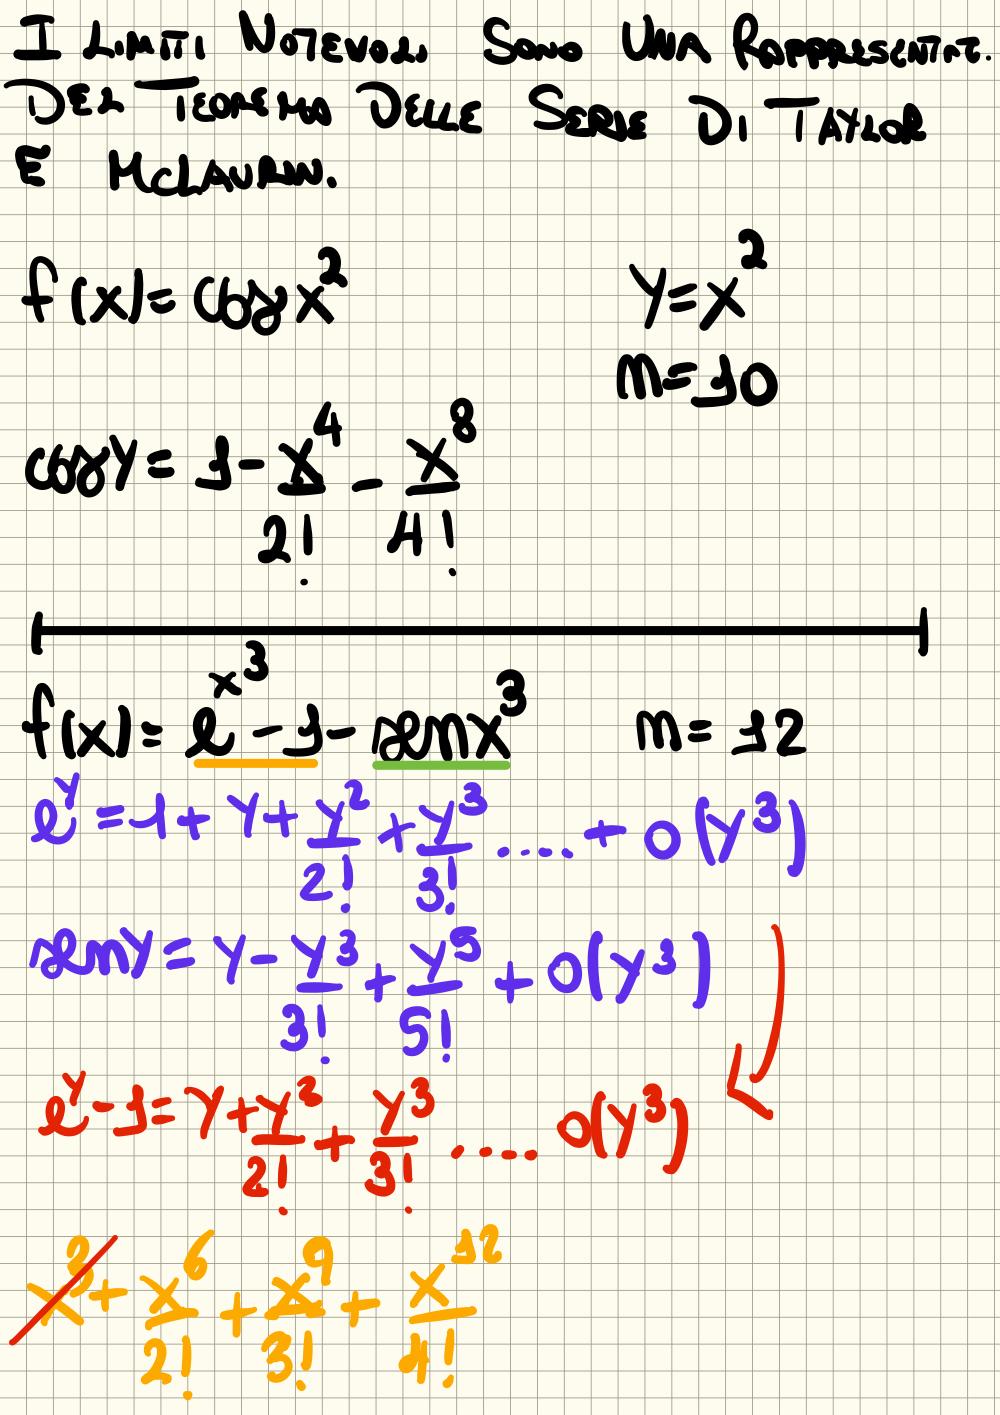 I LIMITI NOTEVOLI SONO UNA RAPPRESENTAZ.
DEL TEOREMA DELLE SERIE DI TAYLOR
E MCLAURIN.
f(x) = cos x² y = x²
n = 10
cos y = 1 - x⁴/2! - x⁸/4!
f(x) = e^x³ - 1 - sen x³ n = 12
e^y = 1 + y + y²/2! + y³/3! ..... + o(y³)
sen y = y - y³/3! + y⁵/5! + o(y³)
e^y - 1 = y + y²/2! + y³/3! ..... o(y³)
x³ + x⁶/2! + x⁹/3! + x¹²/4!